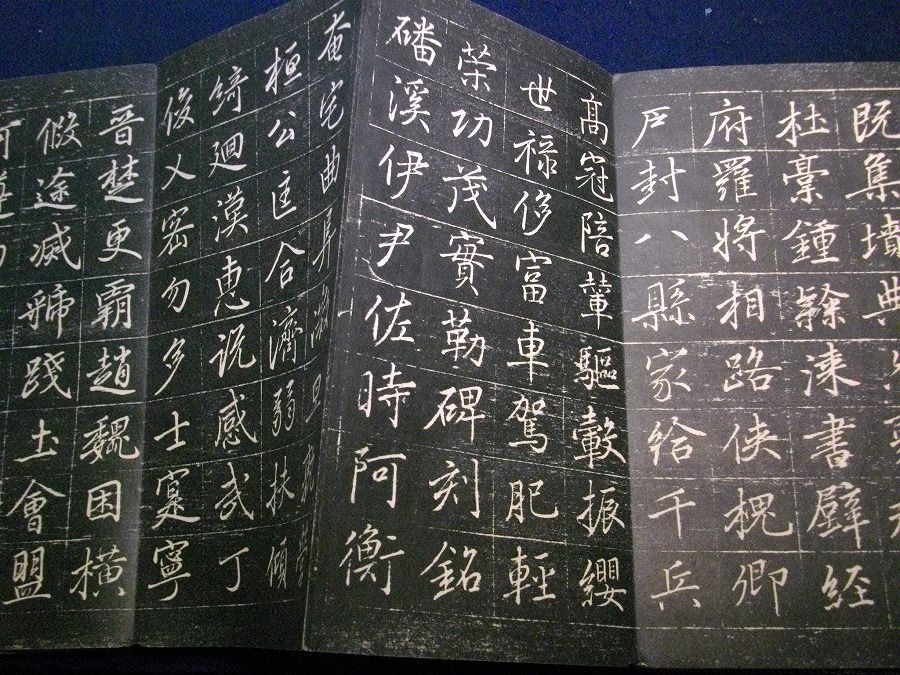 既集墳典
杜稾鍾隸漆書壁経
府羅將相路俠槐卿
戶封八縣家給千兵
髙冠陪輦驅轂振纓
世祿侈富車駕肥輕
策功茂實勒碑刻銘
磻溪伊尹佐時阿衡
奄宅曲阜微旦孰營
桓公匡合濟弱扶傾
綺迴漢惠说感武丁
俊乂密勿多士寔寧
晉楚更霸趙魏困橫
假途滅虢踐土會盟